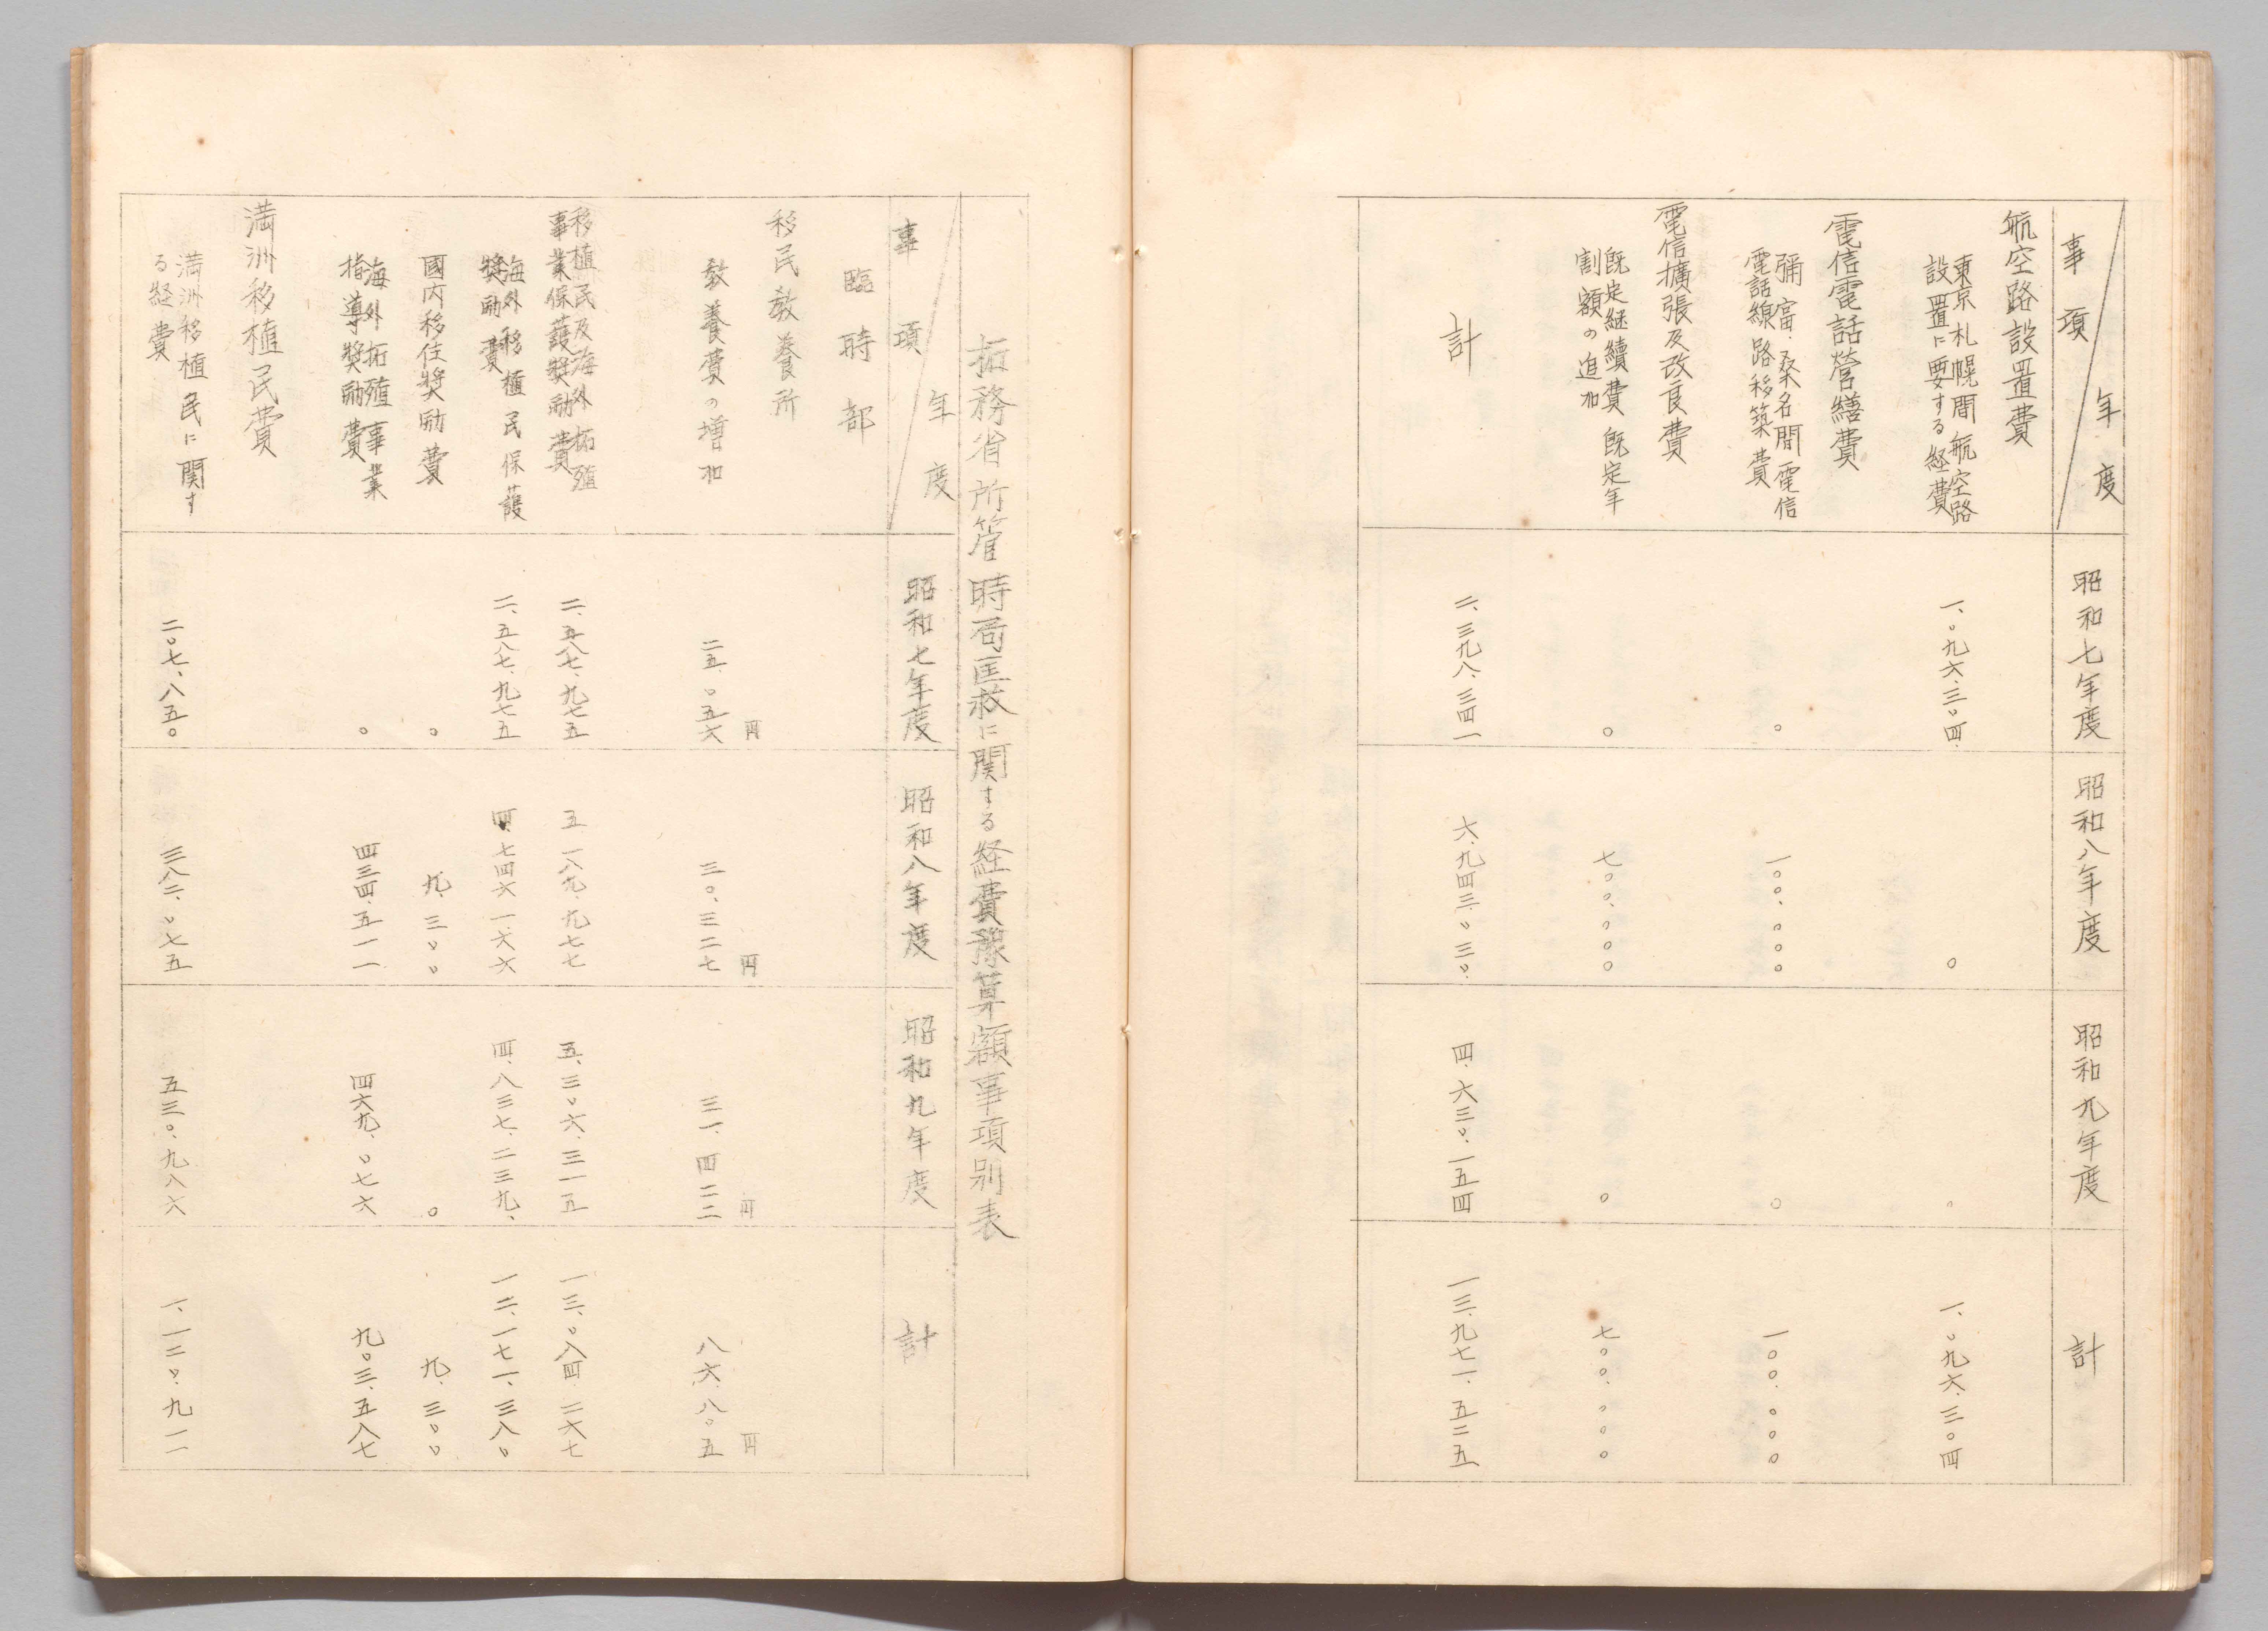 事項
年度
昭和七年度
昭和八年度
昭和九年度
計
航空路設置費
東京札幌間航空路
設置に要する経費
一、〇九六、三〇四
〇
〇
一、〇九六、三〇四
電信電話營繕費
彌富、桑名間電信
電話線路移築費
〇
一〇〇、〇〇〇
〇
一〇〇、〇〇〇
電信擴張及改良費
既定継續費既定年
割額の追加
〇
七〇〇、〇〇〇
〇
七〇〇、〇〇〇
計
二、三九八、三四一
六、九四三、〇三〇
四、六三〇、一五四
一三、九七一、五二五
拓務省所管時局匡救に関する経費豫算額事項別表
事項
年度
昭和七年度
昭和八年度
昭和九年度
計
臨時部
移民教養所
円
円
円
円
教養費の増加
二五、〇五六
三〇、三二七
三一、四二二
八六、八〇五
移植民及海外拓殖
事業保護奬勵費
二、五八七、九七五
五一八九、九七七
五、三〇六、三一五
一三、〇八四、二六七
海外移植民保護
奬勵費
二、五八七、九七五
四、七四六一六六
四、八三七、二三九、
一二、一七一、三八〇
國内移住奬勵費
〇
九、三〇〇
〇
九、三〇〇
海外拓殖事業
指導奬勵費
〇
四三四、五一一
四六九、〇七六
九〇三、五八七
満洲移植民費
満洲移植民に関す
る経費
二〇七、八五〇
三八二、〇七五
五三〇、九八六
一、一二〇、九一一